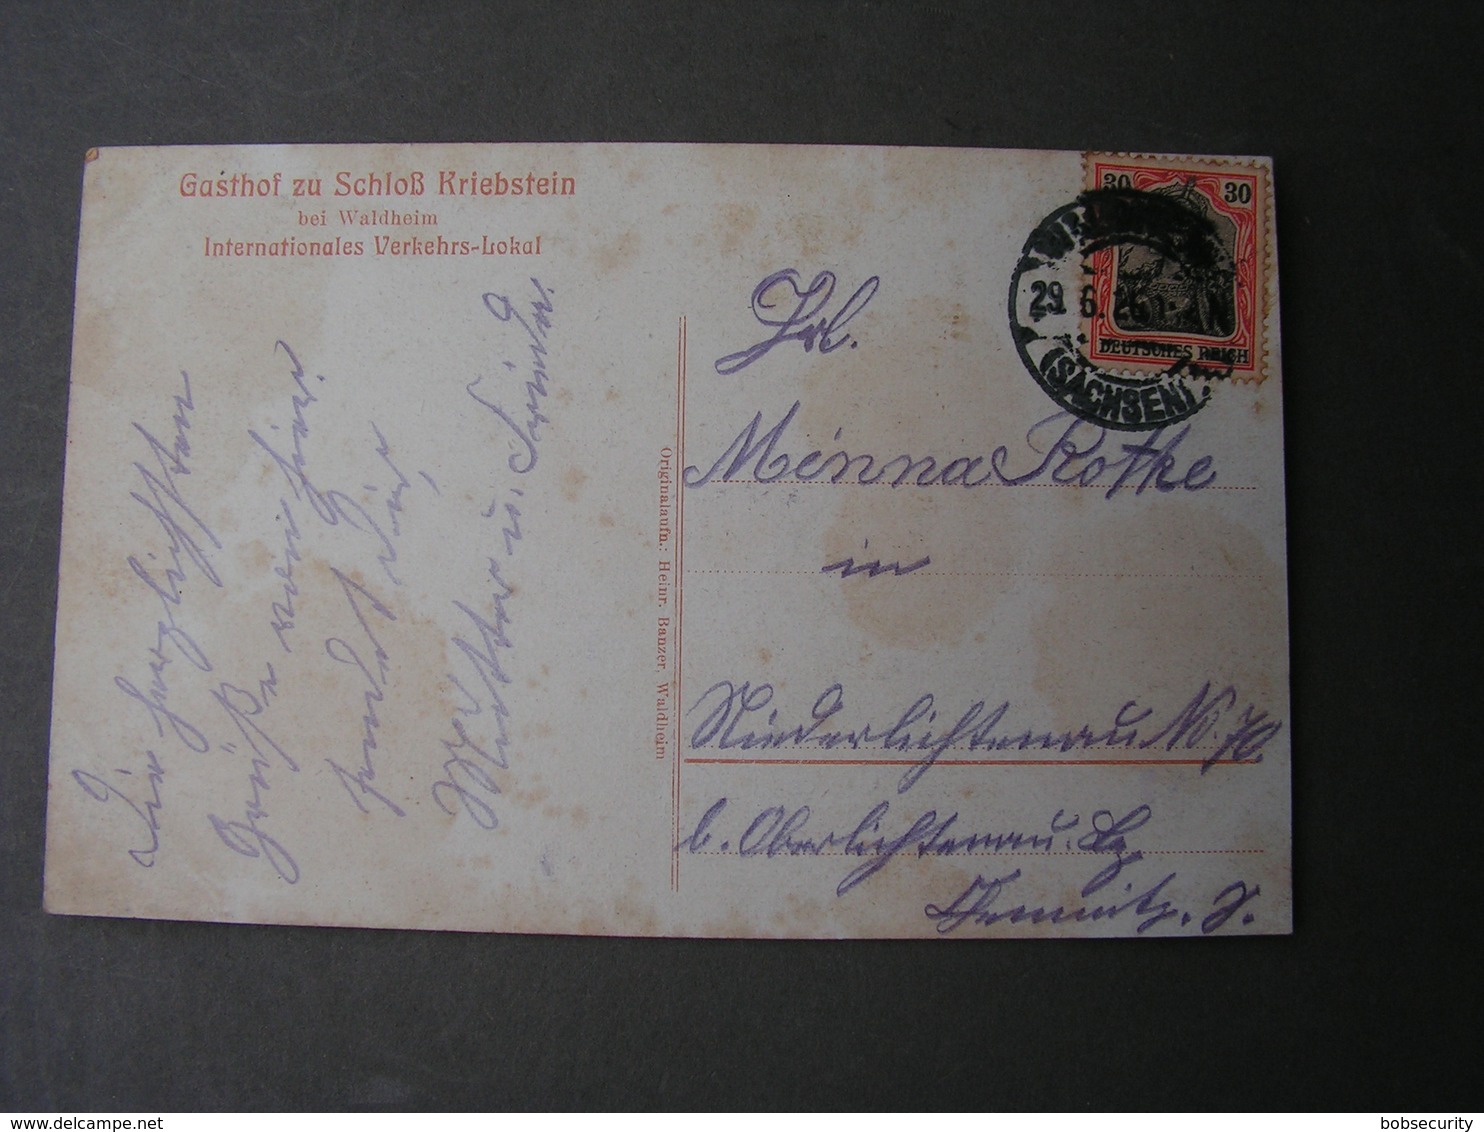 Gasthof zu Schloß Kriebstein
bei Waldheim
Internationales Verkehrs-Lokal
Die herzlichsten
Grüße von hier
sendet dir
Mutter u.
Originalaufn.: Heinr. Banzer, Waldheim
30 30
DEUTSCHES REICH
29. 6. 20
(SACHSEN)
Frl.
Minna Rothe
in
Niederlichtenau No. 70
b. Oberlichtenau. Bz.
Chemnitz. S.
bobsecurity